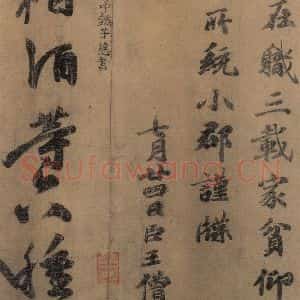 在職三載家貧仰
所統小郡謹牒
七月廿四日臣王僧
栢酒等六種
Shufawang.CN